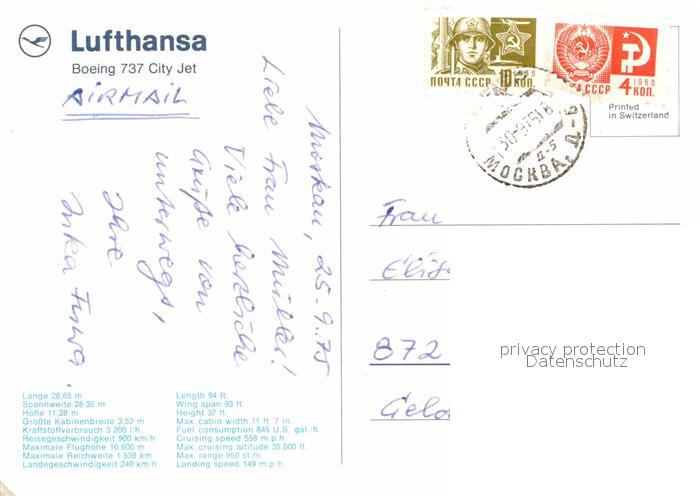 Lufthansa
Boeing 737 City Jet
AIRMAIL
Moskau, 25.9.75
Liebe Frau Müller!
Viele herzliche
Grüße von
unterwegs,
Ihre
Inka
Länge 28,65 m
Spannweite 28.35 m
Höhe 11,28 m
Größte Kabinenbreite 3,52 m
Kraftstoffverbrauch 3.200 l/h
Reisegeschwindigkeit 900 km/h
Maximale Flughöhe 10.600 m
Maximale Reichweite 1.530 km
Landegeschwindigkeit 240 km/h
Length 94 ft.
Wing span 93 ft.
Height 37 ft.
Max. cabin width 11 ft. 7 in.
Fuel consumption 845 U.S. gal./h
Cruising speed 558 m.p.h.
Max. cruising altitude 35,000 ft.
Max. range 950 st.m.
Landing speed 149 m.p.h.
1966
ПОЧТА СССР 10 КОП.
1966
СССР 4 КОП.
МОСКВА, Д-5
Printed
in Switzerland
Frau
872
privacy protection
Datenschutz